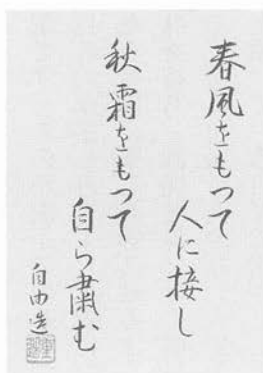 春風をもって
人に接し
秋霜をもって
自ら粛む
自由造